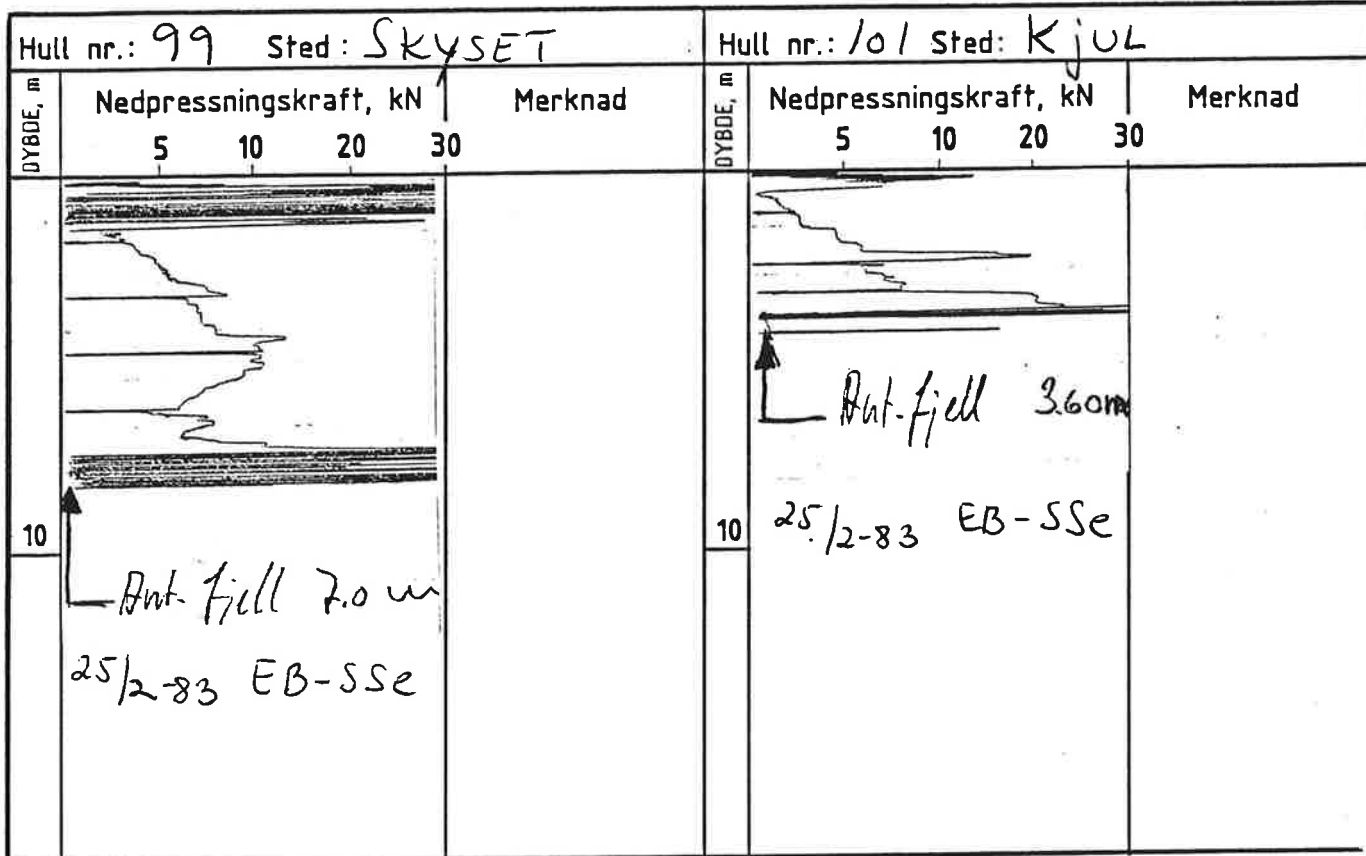 Hull nr.: 99 Sted: SKYSET
DYBDE, m
Nedpressningskraft, kN
Merknad
5 10 20 30
10
Ant. fjell 7.0 m
25/2-83 EB-SSe
Hull nr.: 101 Sted: KjUL
DYBDE, m
Nedpressningskraft, kN
Merknad
5 10 20 30
Ant. fjell 3.60m
10
25./2-83 EB-SSe